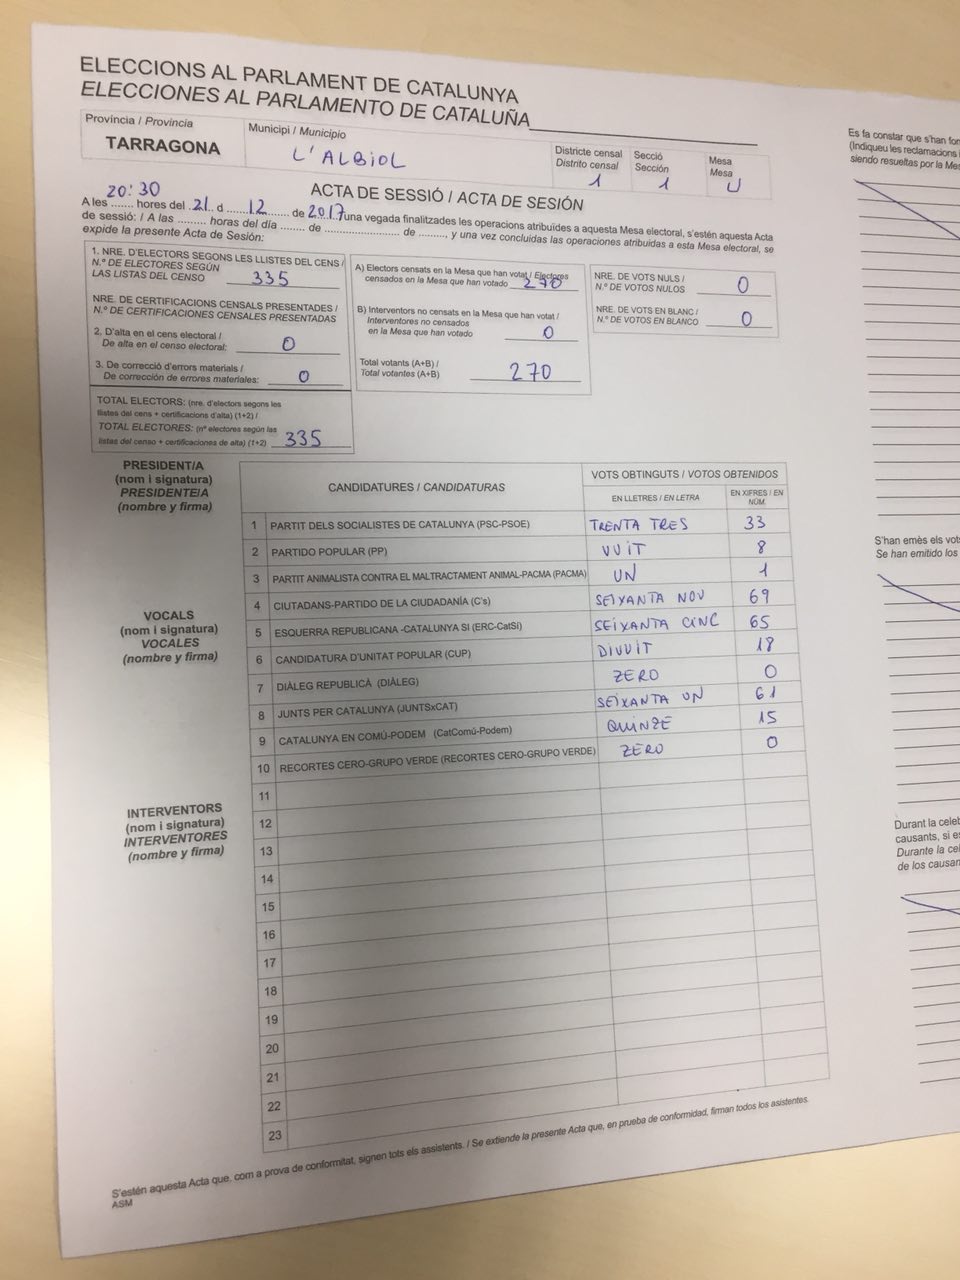 ELECCIONS AL PARLAMENT DE CATALUNYA
ELECCIONES AL PARLAMENTO DE CATALUÑA
Província / Provincia
TARRAGONA
Municipi / Municipio
L'ALBIOL
Districte censal
Distrito censal
1
Secció
Sección
1
Mesa
Mesa
U
ACTA DE SESSIÓ / ACTA DE SESIÓN
20:30
A les ....... hores del .21. d ......12...... de 2017 una vegada finalitzades les operacions atribuïdes a aquesta Mesa electoral, s'estén aquesta Acta
de sessió: / A las ......... horas del día ....... de ......................... de ........, y una vez concluidas las operaciones atribuidas a esta Mesa electoral, se
expide la presente Acta de Sesión:
1. NRE. D'ELECTORS SEGONS LES LLISTES DEL CENS /
N.º DE ELECTORES SEGÚN
LAS LISTAS DEL CENSO 335
NRE. DE CERTIFICACIONS CENSALS PRESENTADES /
N.º DE CERTIFICACIONES CENSALES PRESENTADAS
2. D'alta en el cens electoral /
De alta en el censo electoral: 0
3. De correcció d'errors materials /
De corrección de errores materiales: 0
TOTAL ELECTORS: (nre. d'electors segons les
llistes del cens + certificacions d'alta) (1+2) /
TOTAL ELECTORES: (nº electores según las
listas del censo + certificaciones de alta) (1+2) 335
A) Electors censats en la Mesa que han votat / Electores
censados en la Mesa que han votado 270
B) Interventors no censats en la Mesa que han votat /
Interventores no censados
en la Mesa que han votado 0
Total votants (A+B) /
Total votantes (A+B) 270
NRE. DE VOTS NULS /
N.º DE VOTOS NULOS 0
NRE. DE VOTS EN BLANC /
N.º DE VOTOS EN BLANCO 0
PRESIDENT/A
(nom i signatura)
PRESIDENTE/A
(nombre y firma)
VOCALS
(nom i signatura)
VOCALES
(nombre y firma)
INTERVENTORS
(nom i signatura)
INTERVENTORES
(nombre y firma)
CANDIDATURES / CANDIDATURAS
VOTS OBTINGUTS / VOTOS OBTENIDOS
EN LLETRES / EN LETRA
EN XIFRES / EN NÚM.
1 PARTIT DELS SOCIALISTES DE CATALUNYA (PSC-PSOE) TRENTA TRES 33
2 PARTIDO POPULAR (PP) VUIT 8
3 PARTIT ANIMALISTA CONTRA EL MALTRACTAMENT ANIMAL-PACMA (PACMA) UN 1
4 CIUTADANS-PARTIDO DE LA CIUDADANÍA (C's) SEIXANTA NOV 69
5 ESQUERRA REPUBLICANA -CATALUNYA SI (ERC-CatSí) SEIXANTA CINC 65
6 CANDIDATURA D'UNITAT POPULAR (CUP) DIVUIT 18
7 DIÀLEG REPUBLICÀ (DIÀLEG) ZERO 0
8 JUNTS PER CATALUNYA (JUNTSxCAT) SEIXANTA UN 61
9 CATALUNYA EN COMÚ-PODEM (CatComú-Podem) QUINZE 15
10 RECORTES CERO-GRUPO VERDE (RECORTES CERO-GRUPO VERDE) ZERO 0
11
12
13
14
15
16
17
18
19
20
21
22
23
S'estén aquesta Acta que, com a prova de conformitat, signen tots els assistents. / Se extiende la presente Acta que, en prueba de conformidad, firman todos los asistentes.
ASM
Es fa constar que s'han
(Indiqueu les reclamacions
siendo resueltas por la
S'han emès els
Se han emitido los
Durant la
causants, si
Durante la
de los